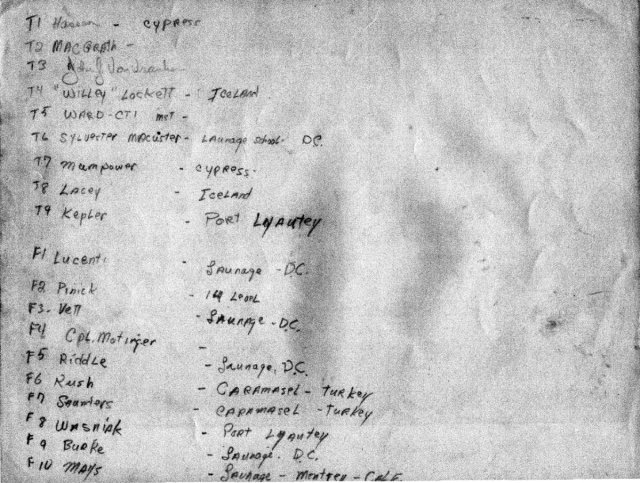 T1 Hassan - CYPRESS
T2 MACGRATH -
T3
T4 "WILLEY" LOCKETT - ICELAND
T5 WARD-CTI MET -
T6 SYLVESTER MACLISTER - LAUNAGE SCHOOL - D.C.
T7 Mumpower - CYPRESS -
T8 LACEY - ICELAND
T9 Kepler - PORT LYAUTEY
F1 LUCENTI - LAUNAGE - D.C.
F2 PINICK - 14 LEVEL
F3 - Vett - LAUNAGE - D.C.
F4 CPL. Motinger -
F5 RIDDLE - LAUNAGE, D.C.
F6 Rush - CARAMASEL - TURKEY
F7 Saunters - CARAMASEL - TURKEY
F8 WASNIAK - PORT LYAUTEY
F9 BURKE - LAUNAGE. D.C.
F10 MAYS - LAUNAGE - Montrey - CALF.